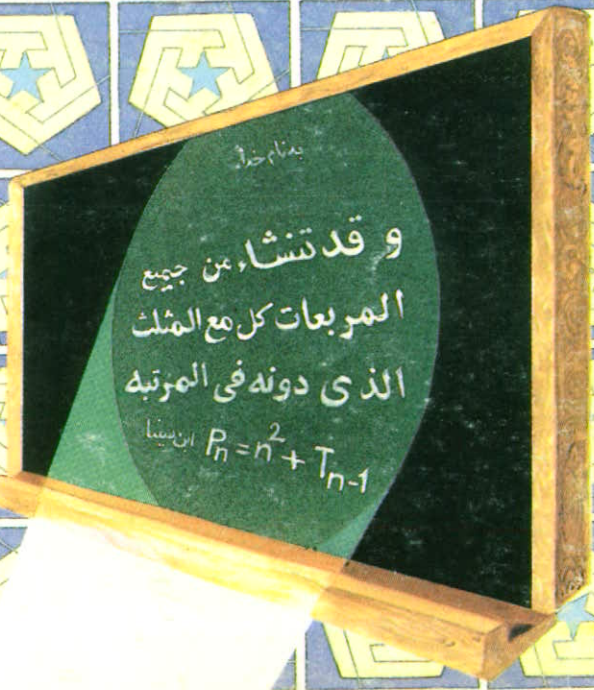 بنام خدا
و قد تنشاء من جميع
المربعات كل مع المثلث
الذى دونه فى المرتبه
ابن سينا Pn = n² + Tn-1